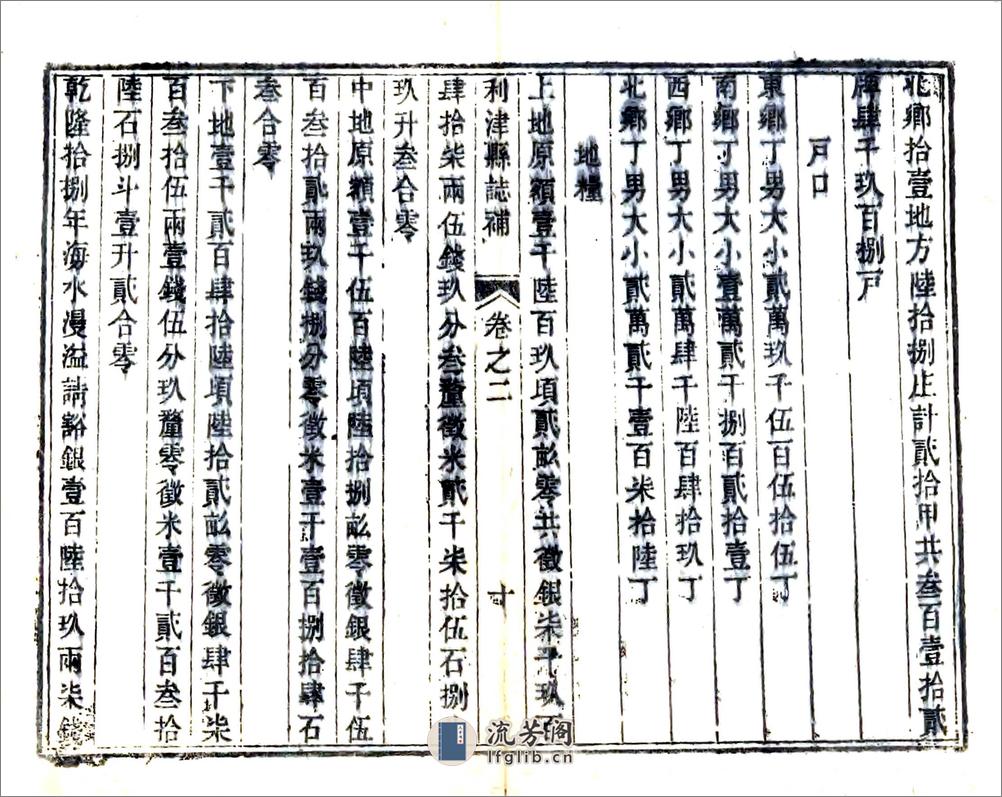 北鄉拾壹地方陸拾捌庄計貳拾甲共叁百壹拾貳
牌肆千玖百捌戸
戸口
東鄉丁男大小貳萬玖千伍百伍拾伍丁
南鄉丁男大小壹萬貳千捌百貳拾壹丁
西鄉丁男大小貳萬肆千陸百肆拾玖丁
北鄉丁男大小貳萬貳千壹百柒拾陸丁
地糧
上地原額壹千陸百玖頃貳畝零共徵銀柒千玖百
利津縣誌補 卷之二 十
肆拾柒兩伍錢玖分叁釐徵米貳千柒拾伍石捌
玖升叁合零
中地原額壹千伍百陸頃陸拾捌畝零徵銀肆千伍
百叁拾貳兩玖錢捌分零徵米壹千壹百捌拾肆石
叁合零
下地壹千貳百肆拾陸頃陸拾貳畝零徵銀肆千柒
百叁拾伍兩壹錢伍分玖釐零徵米壹千貳百叁拾
陸石捌斗壹升貳合零
乾隆拾捌年海水漫溢請豁銀壹百陸拾玖兩柒錢
流芳阁
lfglib.cn